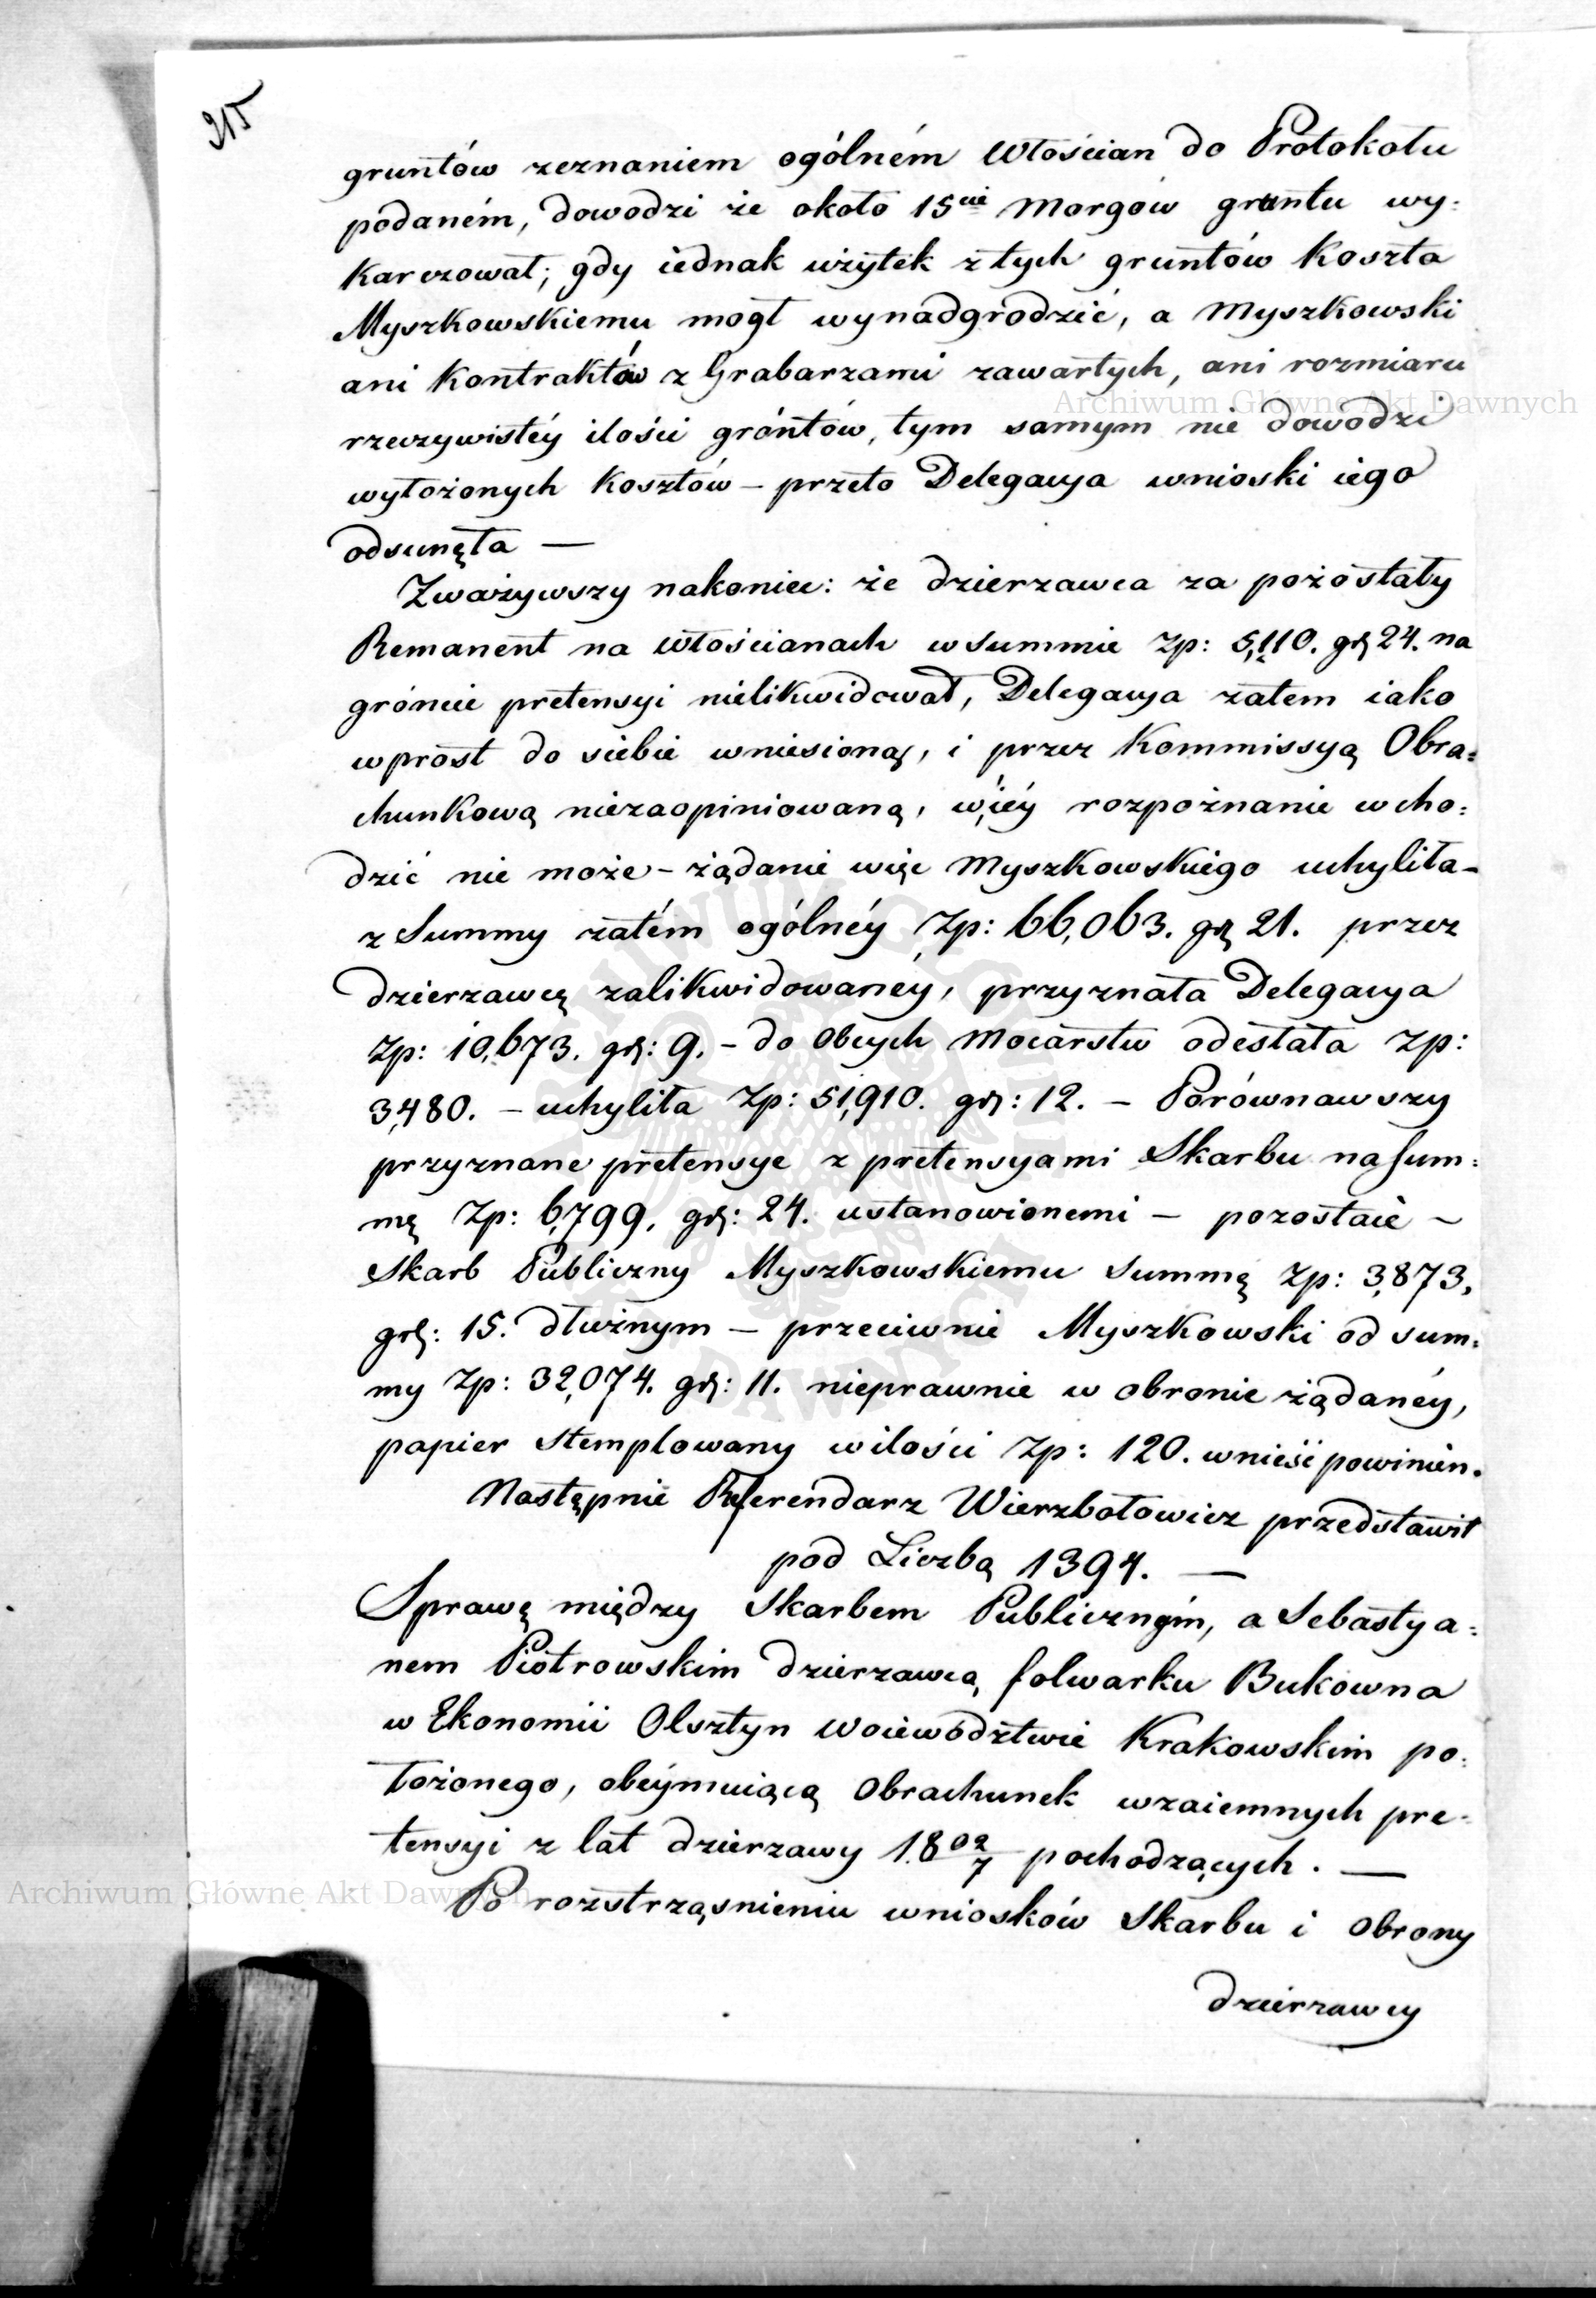 315
gruntów zeznaniem ogólném Włościan do Protokołu
podaném, dowodzi że około 15cie Morgów gruntu wy:
karczował; gdy iednak użytek z tych gruntów koszta
Myszkowskiemu mogł wynadgrodzić, a Myszkowski
ani Kontraktów z Grabarzami zawartych, ani rozmiaru
rzeczywistéy ilości gróntów, tym samym nie dowodzi
wyłożonych Kosztów – przeto Delegacya wnioski iego
odsunęła —
Zważywszy nakoniec: że dzierzawca za pozostały
Remanent na Włościanach w Summie Zp: 5,110. gr 24. na
gróncie pretensyi nielikwidował, Delegacya zatem iako
wprost do siebie wniesioną, i przez Kommissyą Obra:
chunkową niezaopiniowaną, w iéy rozpoznanie wcho:
dzić nie może – żądanie więc Myszkowskiego uchyliła –
z Summy zatém ogólnéy Zp: 66,063. gr 21. przez
dzierzawcę zalikwidowanéy, przyznała Delegacya
Zp: 10,673. gr: 9. – do Obcych Mocarstw odesłała Zp:
3,480. – uchyliła Zp: 51,910. gr: 12. – Porównawszy
przyznane pretensye z pretensyami Skarbu na sum:
mę Zp: 6,799. gr: 24. ustanowionemi – pozostaie –
Skarb Publiczny Myszkowskiemu Summę Zp: 3,873,
gr: 15. dłużnym – przeciwnie Myszkowski od sum:
my Zp: 32,074. gr: 11. nieprawnie w obronie żądanéy,
papier stemplowany w ilości Zp: 120. wnieść powinien.
Następnie Referendarz Wierzbołowicz przedstawił
pod Liczbą 1394. —
Sprawę między Skarbem Publicznym, a Sebastya:
nem Piotrowskim dzierzawcą folwarku Bukowna
w Ekonomii Olsztyn Woiewództwie Krakowskim po:
łożonego, obeymuiącą Obrachunek wzaiemnych pre:
tensyi z lat dzierzawy 1802/7 pochodzących. —
Po rozstrząsnieniu wniosków Skarbu i Obrony
dzierzawcy
Archiwum Główne Akt Dawnych
Archiwum Główne Akt Dawnych